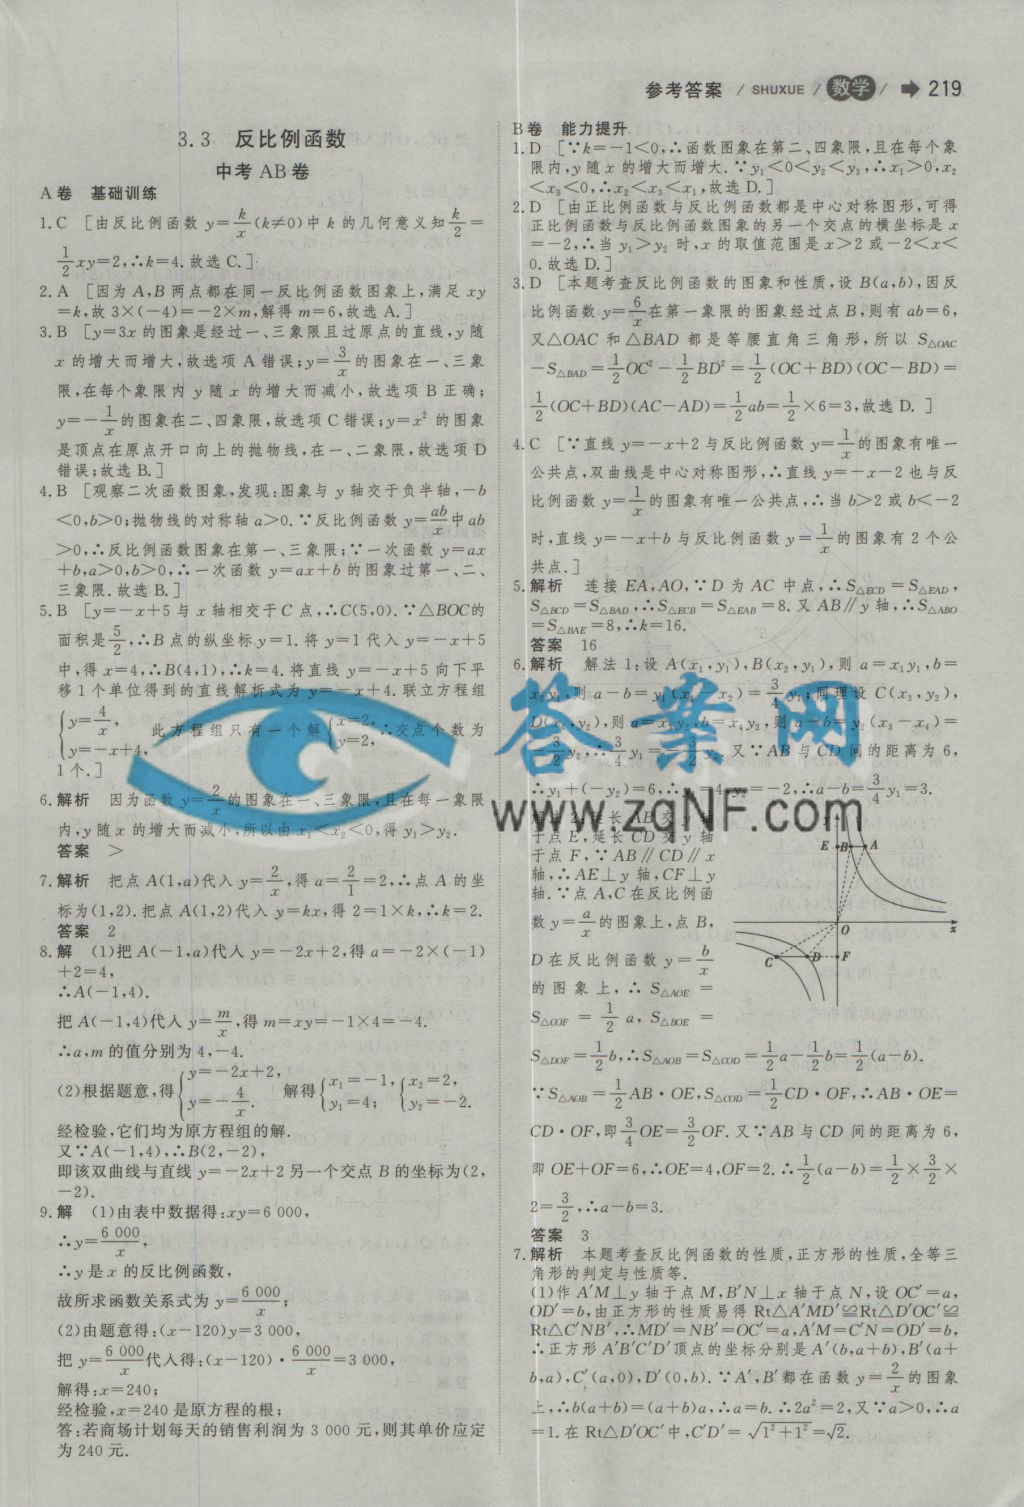 参考答案 / SHUXUE / 数学 / 219
3.3 反比例函数
中考 AB 卷
A 卷 基础训练
1.C [由反比例函数 y=k/x(k≠0)中 k 的几何意义知k/2=
1/2xy=2,∴k=4.故选 C.]
2.A [因为 A,B 两点都在同一反比例函数图象上,满足 xy
=k,故 3×(-4)=-2×m,解得 m=6,故选 A.]
3.B [y=3x 的图象是经过一、三象限且过原点的直线,y 随
x 的增大而增大,故选项 A 错误;y=3/x的图象在一、三象
限,在每个象限内 y 随 x 的增大而减小,故选项 B 正确;
y=-1/x的图象在二、四象限,故选项 C 错误;y=x² 的图象
是顶点在原点开口向上的抛物线,在一、二象限,故选项 D
错误;故选 B.]
4.B [观察二次函数图象,发现:图象与 y 轴交于负半轴,-b
<0,b>0;抛物线的对称轴 a>0.∵反比例函数 y=ab/x中 ab
>0,∴反比例函数图象在第一、三象限;∵一次函数 y=ax
+b,a>0,b>0,∴一次函数 y=ax+b 的图象过第一、二、
三象限.故选 B.]
5.B [y=-x+5 与 x 轴相交于 C 点,∴C(5,0).∵△BOC的
面积是5/2,∴B 点的纵坐标 y=1.将 y=1 代入 y=-x+5
中,得 x=4,∴B(4,1),∴k=4.将直线 y=-x+5 向下平
移 1 个单位得到的直线解析式为 y=-x+4.联立方程组
{y=4/x, y=-x+4, 此方程组只有一个解{x=2, y=2, ∴交点个数为
1 个.]
6.解析 因为函数 y=2/x的图象在一、三象限,且在每一象限
内,y 随 x 的增大而减小,所以由 x₁<x₂<0,得 y₁>y₂.
答案 >
7.解析 把点 A(1,a)代入 y=2/x,得 a=2/1=2,∴点 A 的坐
标为(1,2).把点 A(1,2)代入 y=kx,得 2=1×k,∴k=2.
答案 2
8.解 (1)把 A(-1,a)代入 y=-2x+2,得 a=-2×(-1)
+2=4,
∴A(-1,4).
把 A(-1,4)代入 y=m/x,得 m=xy=-1×4=-4.
∴a,m 的值分别为 4,-4.
(2)根据题意,得{y=-2x+2, y=-4/x. 解得{x₁=-1, y₁=4; {x₂=2, y₂=-2.
经检验,它们均为原方程组的解.
又∵A(-1,4),∴B(2,-2),
即该双曲线与直线 y=-2x+2 另一个交点 B 的坐标为(2,
-2).
9.解 (1)由表中数据得:xy=6 000,
∴y=6 000/x,
∴y 是 x 的反比例函数,
故所求函数关系式为 y=6 000/x;
(2)由题意得:(x-120)y=3 000,
把 y=6 000/x代入得:(x-120)·6 000/x=3 000,
解得:x=240;
经检验,x=240 是原方程的根;
答:若商场计划每天的销售利润为 3 000 元,则其单价应定
为 240 元.
B 卷 能力提升
1.D [∵k=-1<0,∴函数图象在第二、四象限,且在每个象
限内,y 随 x 的增大而增大.∵y₁<0<y₂<y₃,∴x₁>0,x₂
<x₃<0,∴x₂<x₃<x₁,故选 D.]
2.D [由正比例函数与反比例函数都是中心对称图形,可得
正比例函数与反比例函数图象的另一个交点的横坐标是 x
=-2,∴当 y₁>y₂ 时,x 的取值范围是 x>2 或-2<x<
0.故选 D.]
3.D [本题考查反比例函数的图象和性质,设 B(a,b),因反
比例函数 y=6/x在第一象限的图象经过点 B,则有 ab=6,
又△OAC 和△BAD 都是等腰直角三角形,所以 S△OAC
-S△BAD=1/2OC²-1/2BD²=1/2(OC+BD)(OC-BD)=
1/2(OC+BD)(AC-AD)=1/2ab=1/2×6=3,故选 D. ]
4.C [∵直线 y=-x+2 与反比例函数 y=1/x的图象有唯一
公共点,双曲线是中心对称图形,∴直线 y=-x-2 也与反
比例函数 y=1/x的图象有唯一公共点,∴当 b>2 或 b<-2
时,直线 y=-x+b 与反比例函数 y=1/x的图象有 2 个公
共点.]
5.解析 连接 EA,AO,∵D 为 AC 中点,∴S△ECD=S△EAD,
S△BCD=S△BAD,∴S△ECB=S△EAB=8.又 AB∥y 轴,∴S△ABO
=S△BAE=8,∴k=16.
答案 16
6.解析 解法 1:设 A(x₁,y₁),B(x₂,y₁),则 a=x₁y₁,b=
x₂y₁,则 a-b=y₁(x₁-x₂)=3/4y₁;同理设 C(x₃,y₂),
D(x₄,y₂),则 a=x₃y₂,b=x₄y₂,则 a-b=y₂(x₃-x₄)=
-3/2y₂,∴3/4y₁=-3/2y₂.又∵AB 与 CD 间的距离为 6,
∴y₁+(-y₂)=6,∴y₁=4,y₂=-2,∴a-b=3/4y₁=3.
解法 2:延长 AB 交 y 轴
于点 E,延长 CD 交 y 轴
于点 F,∵AB∥CD∥x
轴,∴AE⊥y 轴,CF⊥y
轴.∵点 A,C 在反比例函
数 y=a/x的图象上,点 B,
D 在反比例函数 y=b/x
的图象上,∴S△AOE=
S△COF=1/2a,S△BOE=
y E B A O x C D F
S△DOF=1/2b,∴S△AOB=S△COD=1/2a-1/2b=1/2(a-b).
∵S△AOB=1/2AB·OE,S△COD=1/2CD·OF,∴AB·OE=
CD·OF,即3/4OE=3/2OF.又∵AB 与 CD 间的距离为 6,
即 OE+OF=6,∴OE=4,OF=2.∴1/2(a-b)=1/2×3/2×
2=3/2,∴a-b=3.
答案 3
7.解析 本题考查反比例函数的性质,正方形的性质,全等三
角形的判定与性质等.
(1)作 A′M⊥y 轴于点 M,B′N⊥x 轴于点 N,设 OC′=a,
OD′=b,由正方形的性质易得 Rt△A′MD′≌Rt△D′OC′≌
Rt△C′NB′,∴MD′=NB′=OC′=a,A′M=C′N=OD′=b,
∴正方形 A′B′C′D′顶点的坐标分别是 A′(b,a+b),B′(a+
b,a),C′(a,0),D′(0,b).∵A′,B′都在函数 y=2/x的图象
上,∴b(a+b)=(a+b)a,∴a=b.∴2a²=2,又∵a>0,∴a
=1.在 Rt△D′OC′中,C′D′=√1²+1²=√2.
答案网
www.zqNF.com